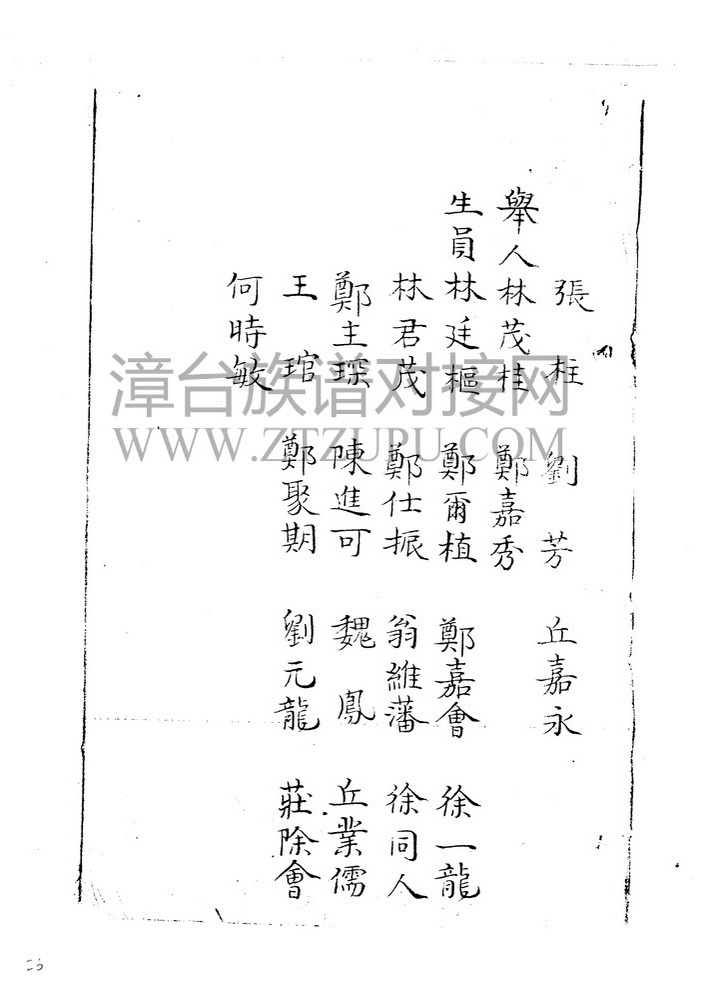 張柱 劉芳 丘嘉永
舉人林茂桂 鄭嘉秀
生員林廷樞 鄭爾植 鄭嘉會 徐一龍
林君茂 鄭仕振 翁維藩 徐同人
鄭主琛 陳進可 魏鳳 丘業儒
王琯 鄭聚期 劉元龍 莊除會
何時敏
漳台族谱对接网
WWW.ZTZUPU.COM